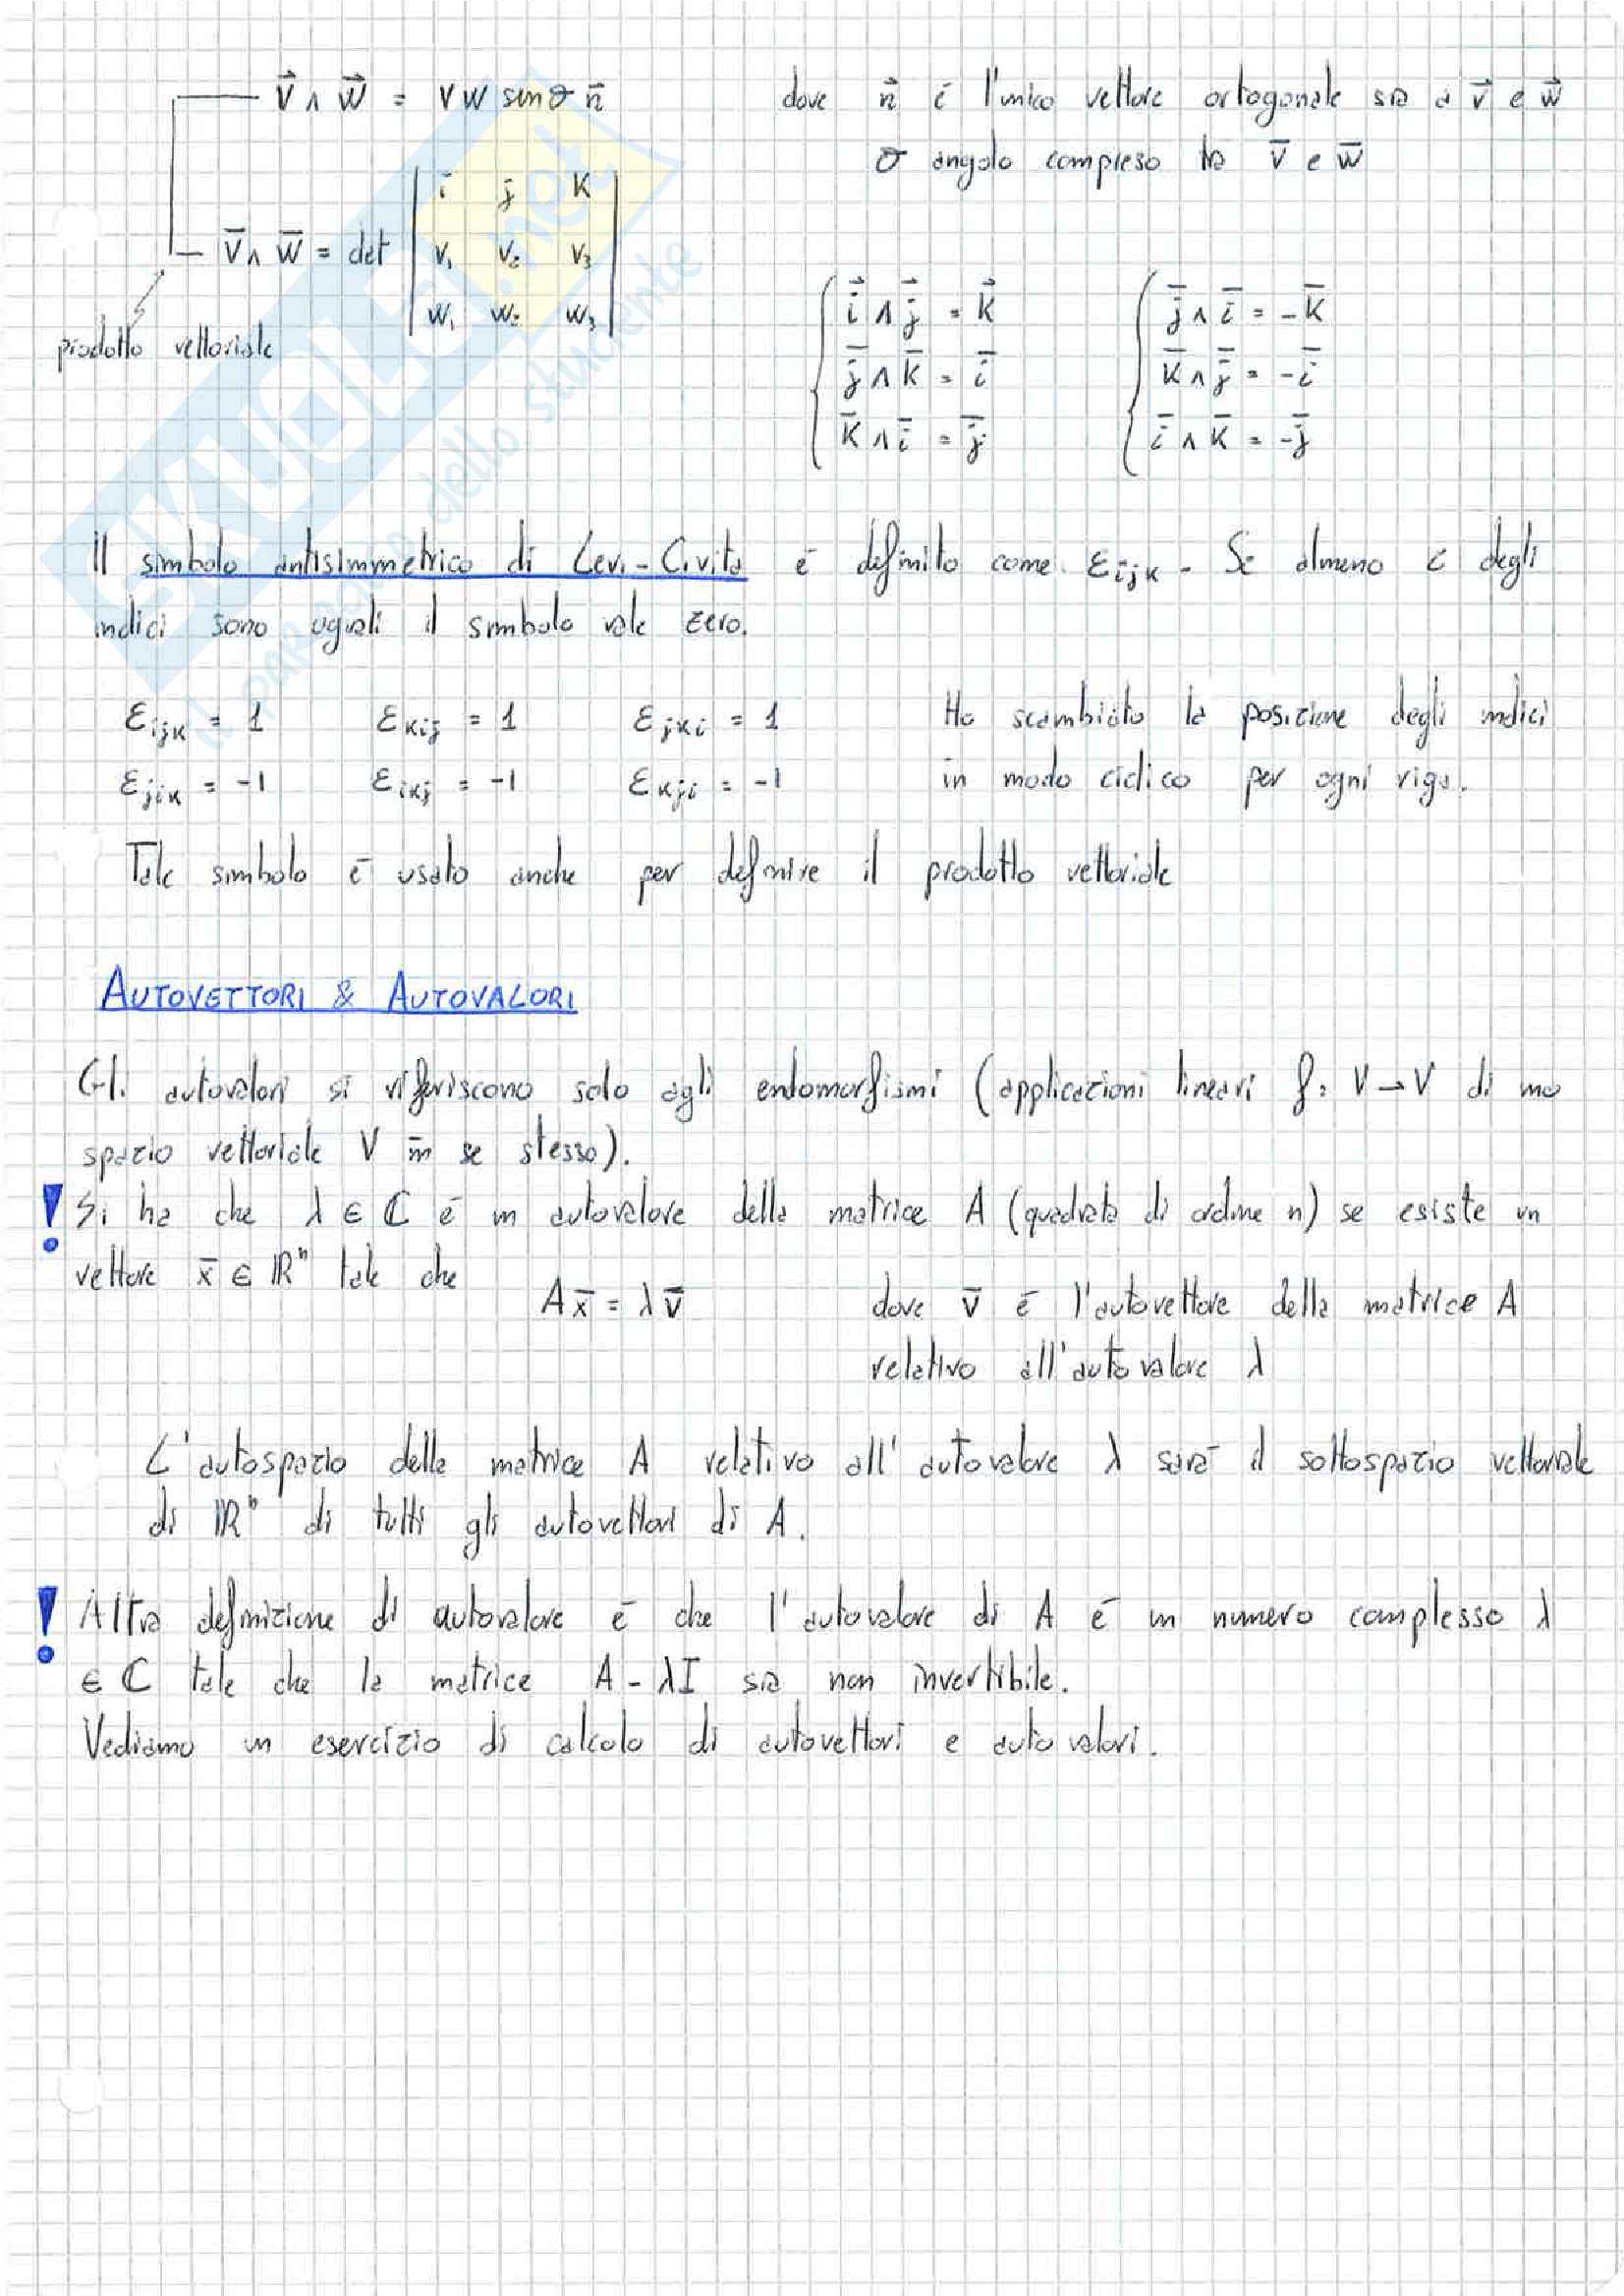 v⃗ ∧ w⃗ = v w sen θ n̄ dove n⃗ è l'unico vettore ortogonale sia a v⃗ e w⃗
θ angolo compreso tra v̄ e w̄
v̄ ∧ w̄ = det | i j k |
| v₁ v₂ v₃ |
| w₁ w₂ w₃ |
prodotto vettoriale
i⃗ ∧ j⃗ = k⃗
j̄ ∧ k̄ = ī
k̄ ∧ ī = j̄
j̄ ∧ ī = -k̄
k̄ ∧ j̄ = -ī
ī ∧ k̄ = -j̄
Il simbolo antisimmetrico di Levi-Civita è definito come εijk. Se almeno 2 degli
indici sono uguali il simbolo vale zero.
εijk = 1 εkij = 1 εjki = 1 Ho scambiato la posizione degli indici
εjik = -1 εikj = -1 εkji = -1 in modo ciclico per ogni riga.
Tale simbolo è usato anche per definire il prodotto vettoriale
AUTOVETTORI & AUTOVALORI
Gli autovalori si riferiscono solo agli endomorfismi (applicazioni lineari f: V → V di uno
spazio vettoriale V in se stesso).
! Si ha che λ ∈ ℂ è un autovalore della matrice A (quadrata di ordine n) se esiste un
vettore x̄ ∈ ℝⁿ tale che
A x̄ = λ v̄ dove v̄ è l'autovettore della matrice A
relativo all'autovalore λ
L'autospazio della matrice A relativo all'autovalore λ sarà il sottospazio vettoriale
di ℝⁿ di tutti gli autovettori di A.
! Altra definizione di autovalore è che l'autovalore di A è un numero complesso λ
∈ ℂ tale che la matrice A - λI sia non invertibile.
Vediamo un esercizio di calcolo di autovettori e autovalori.
SKUOLA.net
il paradiso dello studente